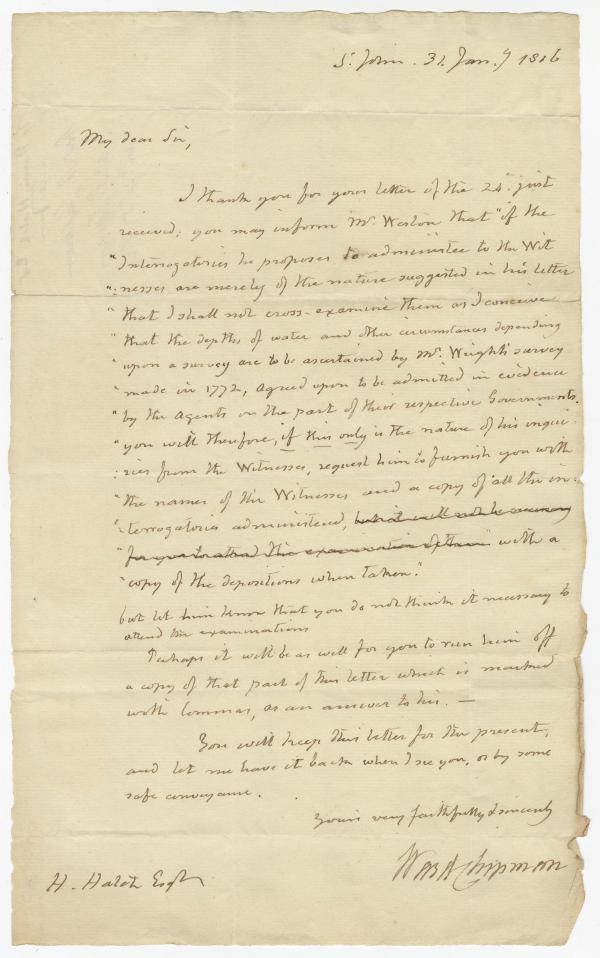 St. John. 31. Jan.y 1816
My dear Sir,
I thank you for your letter of the 24th. just
received; you may inform Mr. Weston that "if the
"Interrogatories he proposes to administer to the Wit
":nesses are merely of the nature suggested in his letter
"that I shall not cross-examine them as I conceive
"that the depths of water and other circumstances depending
"upon a survey are to be ascertained by Mr. Wright's survey
"made in 1772, agreed upon to be admitted in evidence
"by the Agents on the part of their respective Governments.
"you will therefore, if this only is the nature of his inqui:
:ries from the Witnesses, request him to furnish you with
"the names of the Witnesses and a copy of all the in:
":terrogatories administered, but it will not be necessary
"for you to attend the examination of them" with a
"copy of the depositions when taken."
but let him know that you do not think it necessary to
attend the examinations
Perhaps it will be as well for you to run him off
a copy of that part of this letter which is marked
with Commas, as an answer to his. —
You will keep this letter for the present,
and let me have it back when I see you, or by some
safe conveyance.
Yours very faithfully & sincerely
Ward Chipman
H. Hatch Esqr